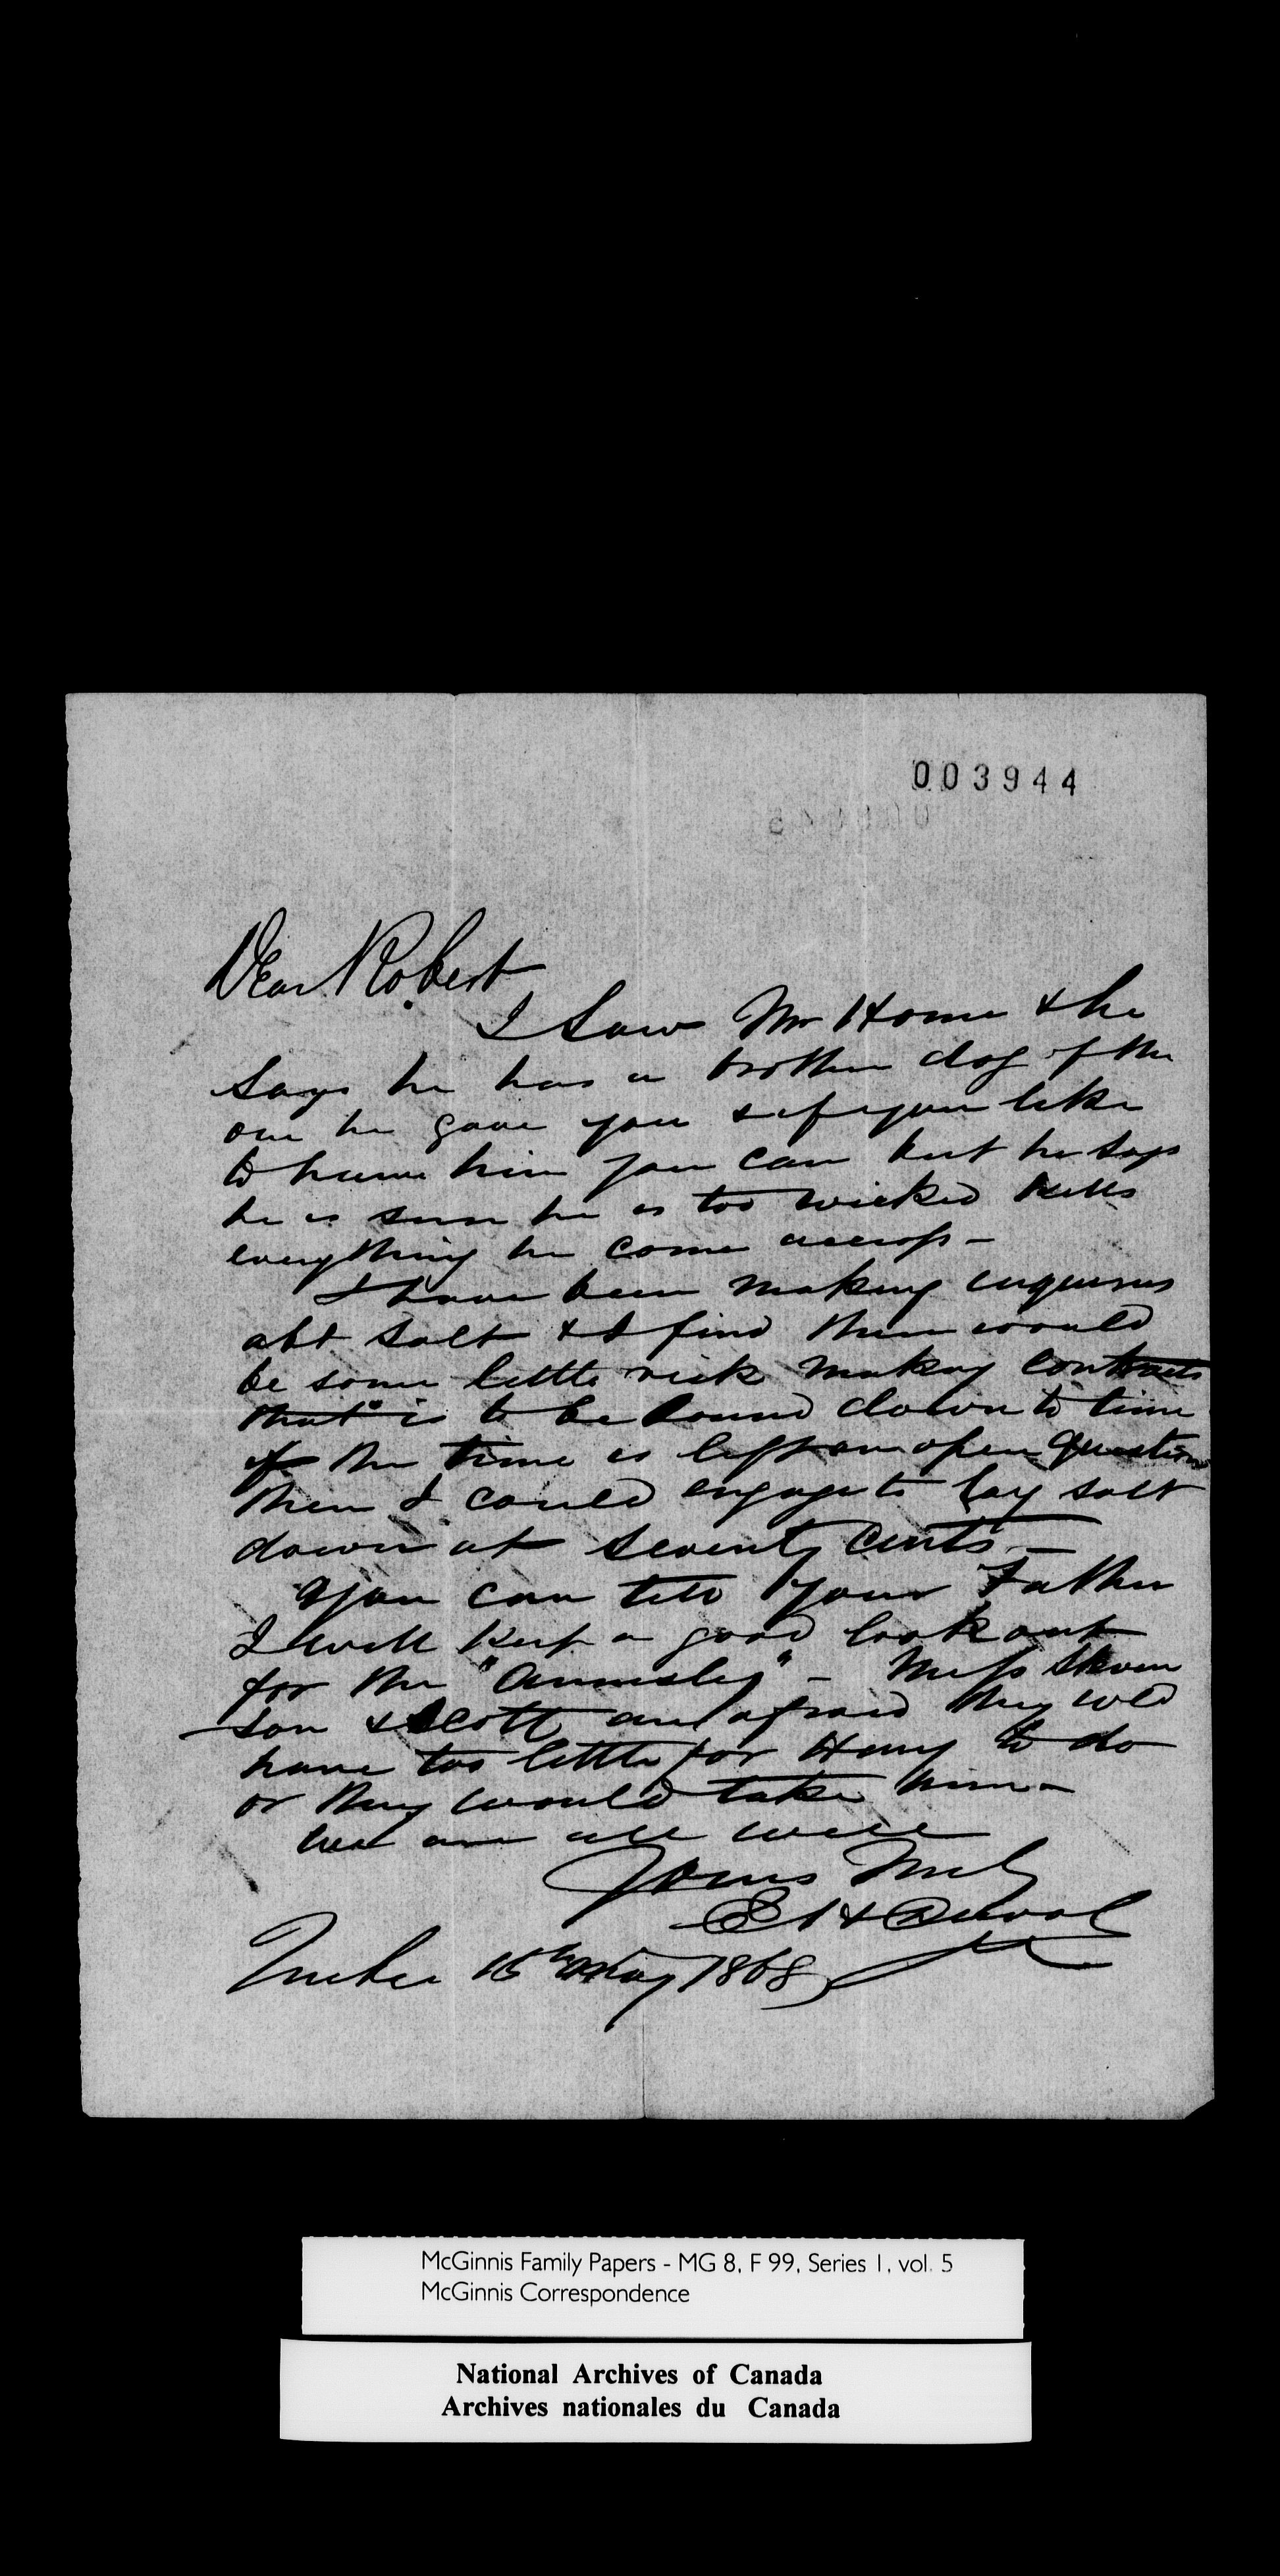 003944
Dear Robert
I saw Mr Home & he
says he has a brother dog of the
one he gave you & if you like
to have him you can but he says
he is sure he is too wicked kills
everything he come across -
I have been making enquiries
abt salt & I find there would
be some little risk making contracts
that is to be bound down to time
if the time is left an open question
then I could engage to lay salt
down at seventy cents -
You can tell your Father
I will keep a good look out
for the "Annesley" - Mess
son & Scott are afraid they wld
have too little for Henry to do
or they would take him -
We are all well
Yours truly
E H Duval
Quebec 15th May 1868
McGinnis Family Papers - MG 8, F 99, Series 1, vol. 5
McGinnis Correspondence
National Archives of Canada
Archives nationales du Canada